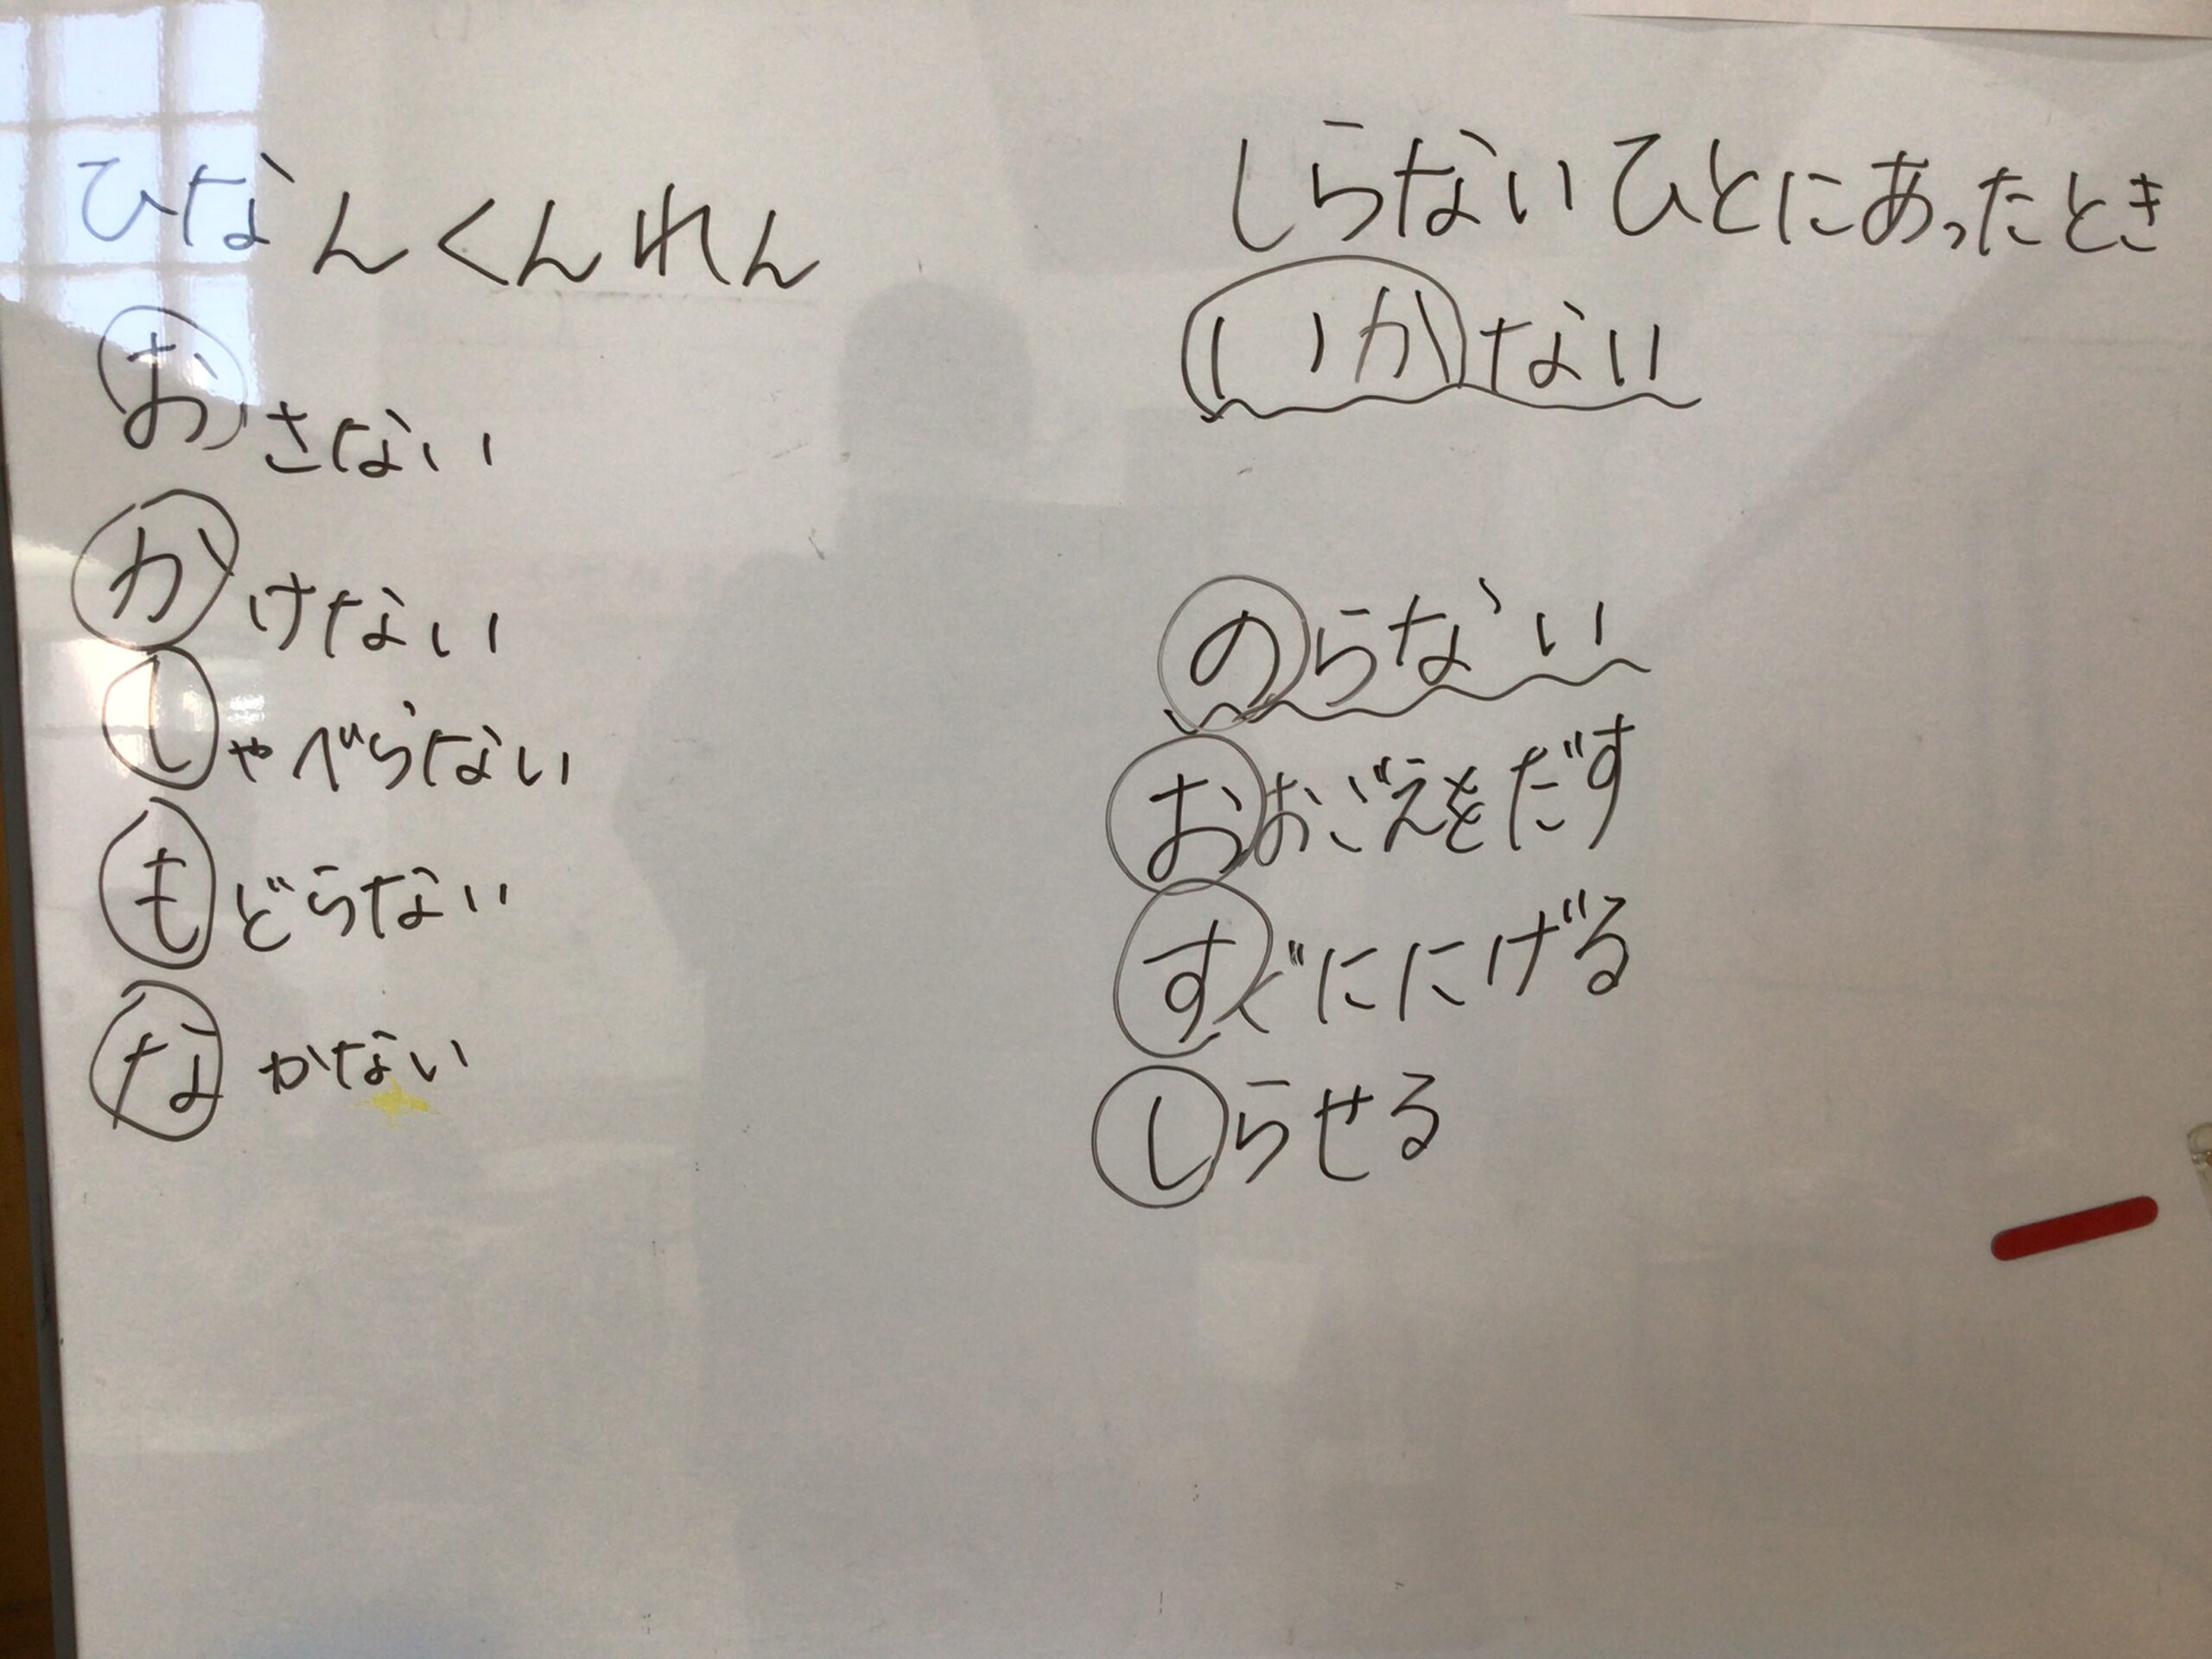 ひなんくんれん
おさない
かけない
しゃべらない
もどらない
なかない
しらないひとにあったとき
いかない
のらない
おおごえをだす
すぐににげる
しらせる